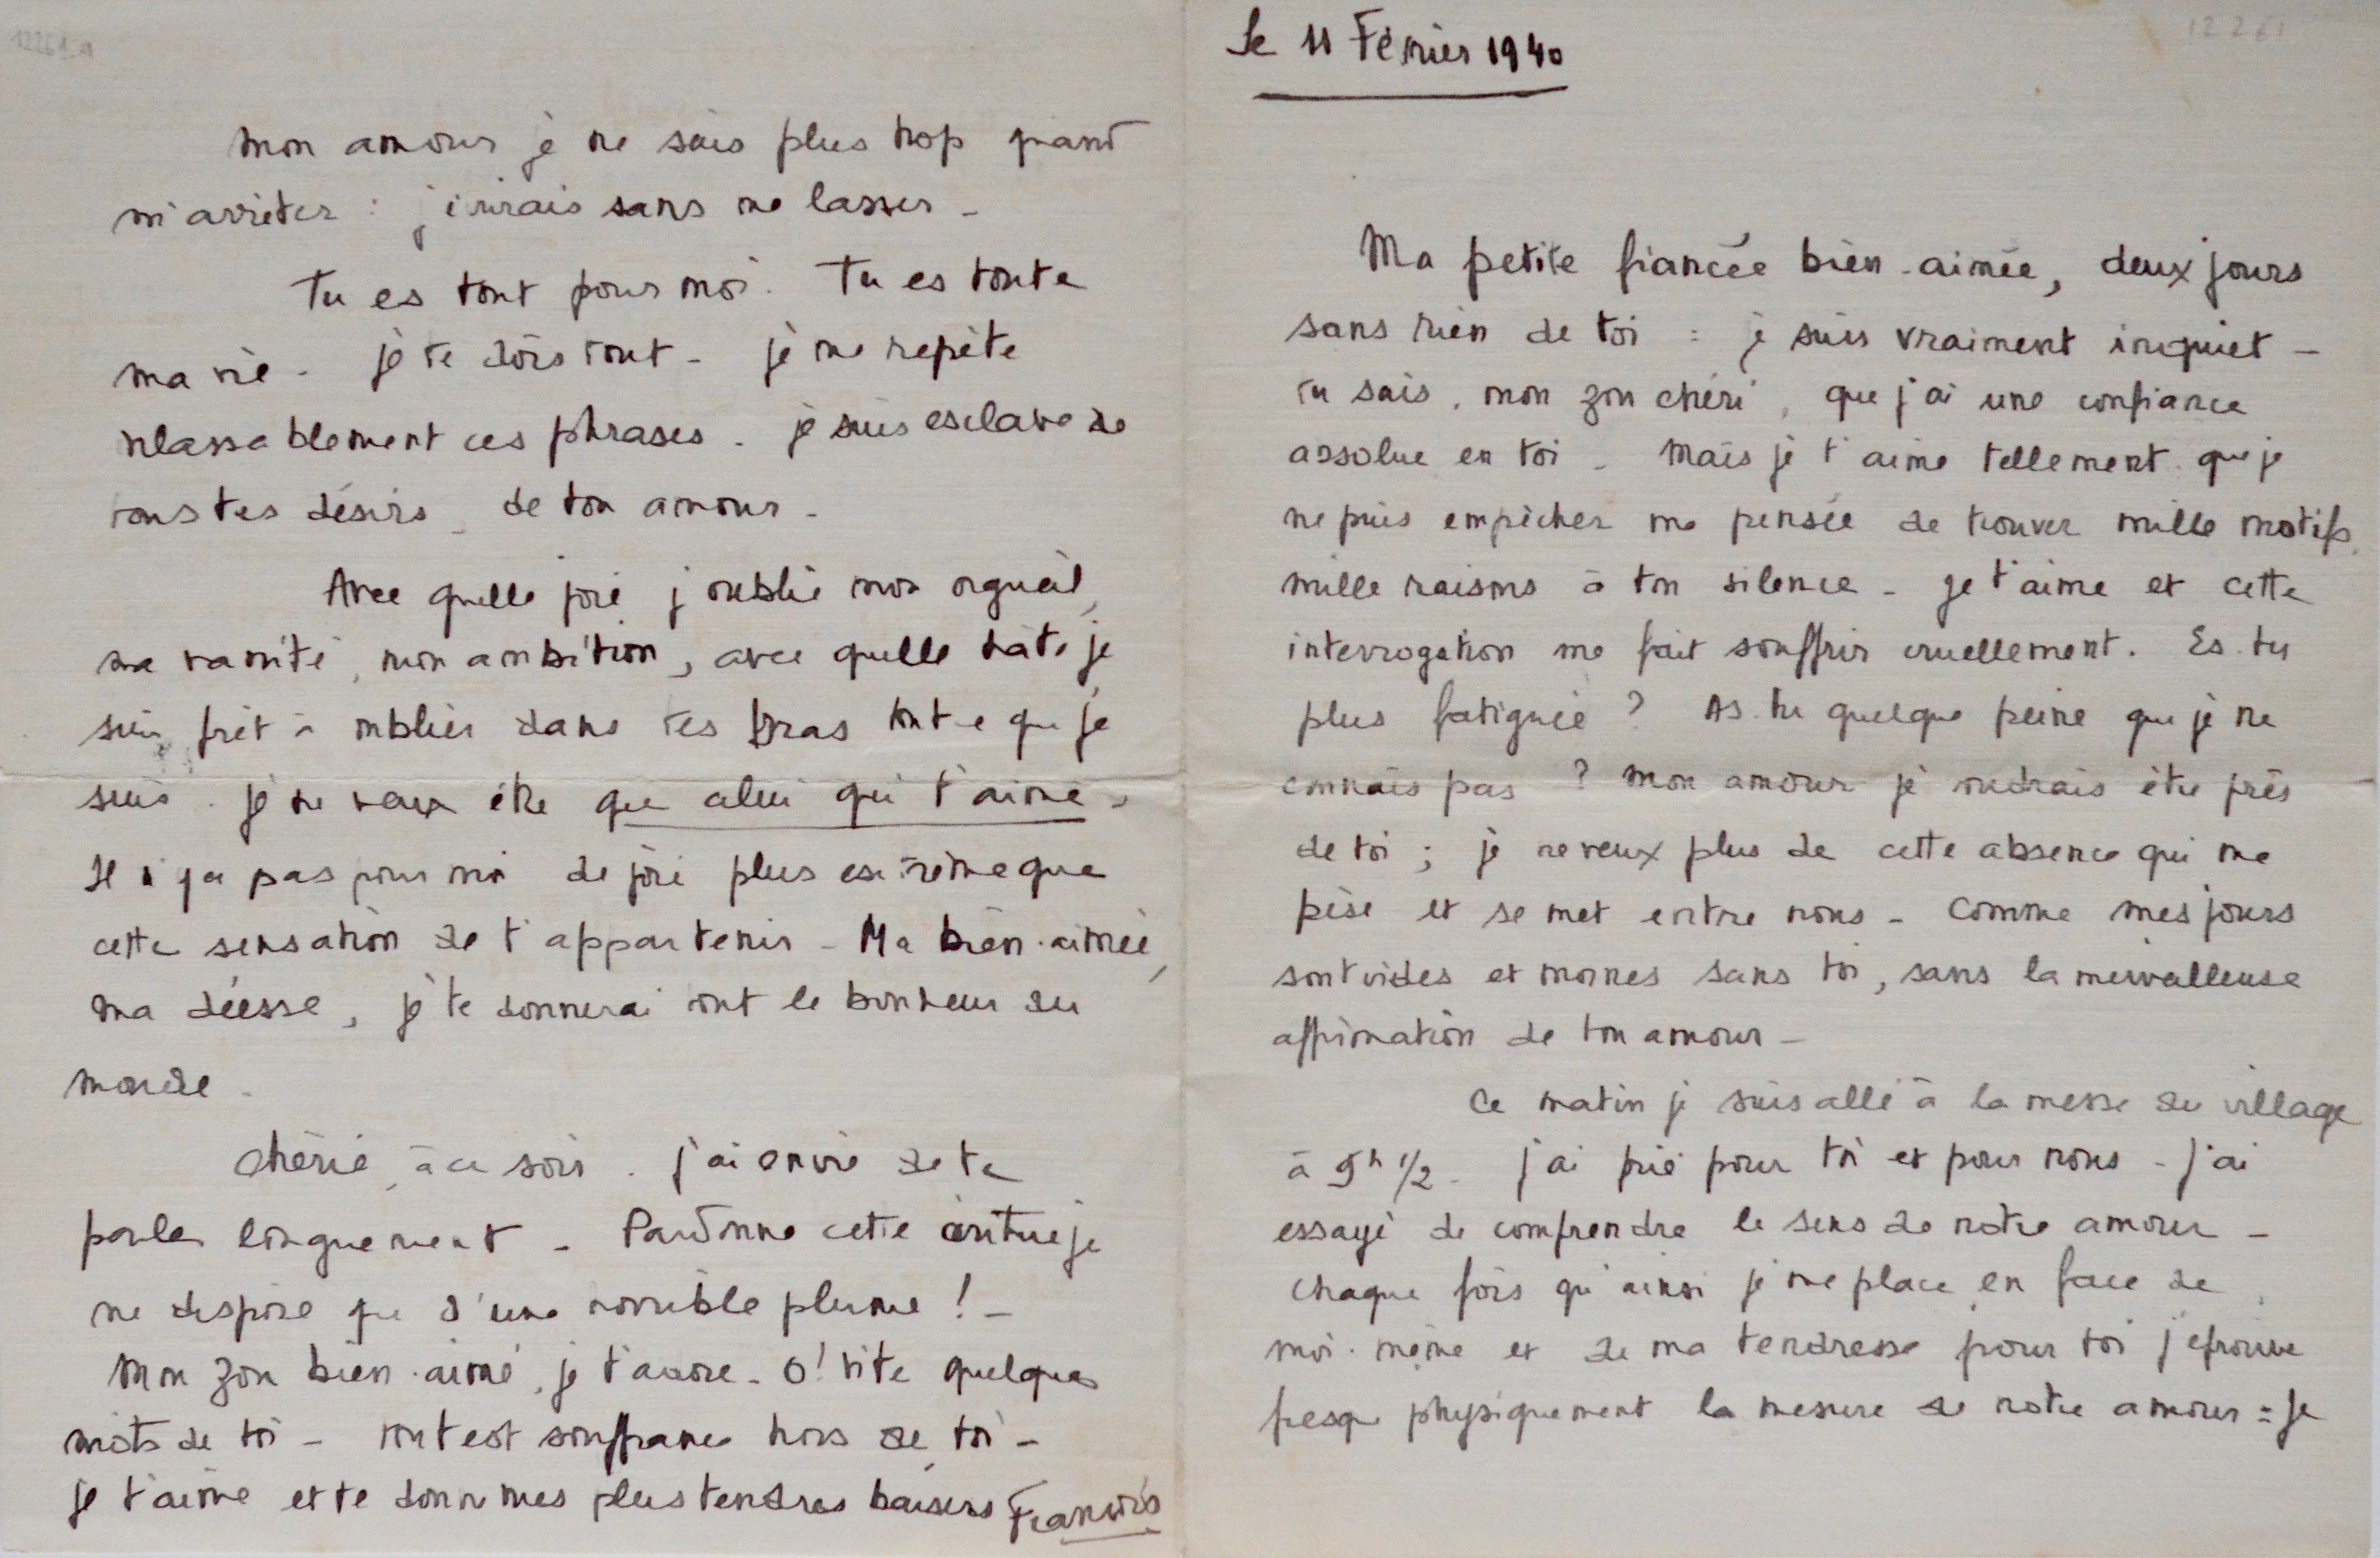 12261
Le 11 Février 1940
Ma petite fiancée bien-aimée, deux jours
sans rien de toi : je suis vraiment inquiet -
Tu sais, mon zou chéri, que j'ai une confiance
absolue en toi - Mais je t'aime tellement que je
ne puis empêcher ma pensée de trouver mille motifs,
mille raisons à ton silence - Je t'aime et cette
interrogation me fait souffrir cruellement. Es-tu
plus fatiguée ? As-tu quelque peine que je ne
connais pas ? Mon amour je voudrais être près
de toi ; je ne veux plus de cette absence qui me
pèse et se met entre nous - Comme mes jours
sont vides et mornes sans toi, sans la merveilleuse
affirmation de ton amour -
Ce matin je suis allé à la messe du village
à 9h 1/2 - J'ai prié pour toi et pour nous - J'ai
essayé de comprendre le sens de notre amour -
Chaque fois qu'ainsi je me place en face de
moi-même et de ma tendresse pour toi j'éprouve
presque physiquement la mesure de notre amour : Je
12261 a
Mon amour je ne sais plus trop quand
m'arrêter : j'écrirais sans me lasser -
Tu es tout pour moi. Tu es toute
ma vie - Je te dois tout - Je me repète
inlassablement ces phrases - Je suis esclave de
tous tes désirs - de ton amour -
Avec quelle joie j'oublie mon orgueil,
ma vanité, mon ambition, avec quelle hâte je
suis prêt à oublier dans tes bras tout ce que je
suis. Je ne veux être que celui qui t'aime -
Il n'y a pas pour moi de joie plus extrême que
cette sensation de t'appartenir - Ma bien-aimée,
ma déesse, je te donnerai tout le bonheur du
monde -
Chérie, à ce soir. J'ai envie de te
parler longuement - Pardonne cette écriture je
ne dispose que d'une horrible plume ! -
Mon zou bien-aimé, je t'adore - O ! Vite quelques
mots de toi - Tout est souffrance hors de toi -
Je t'aime et te donne mes plus tendres baisers François